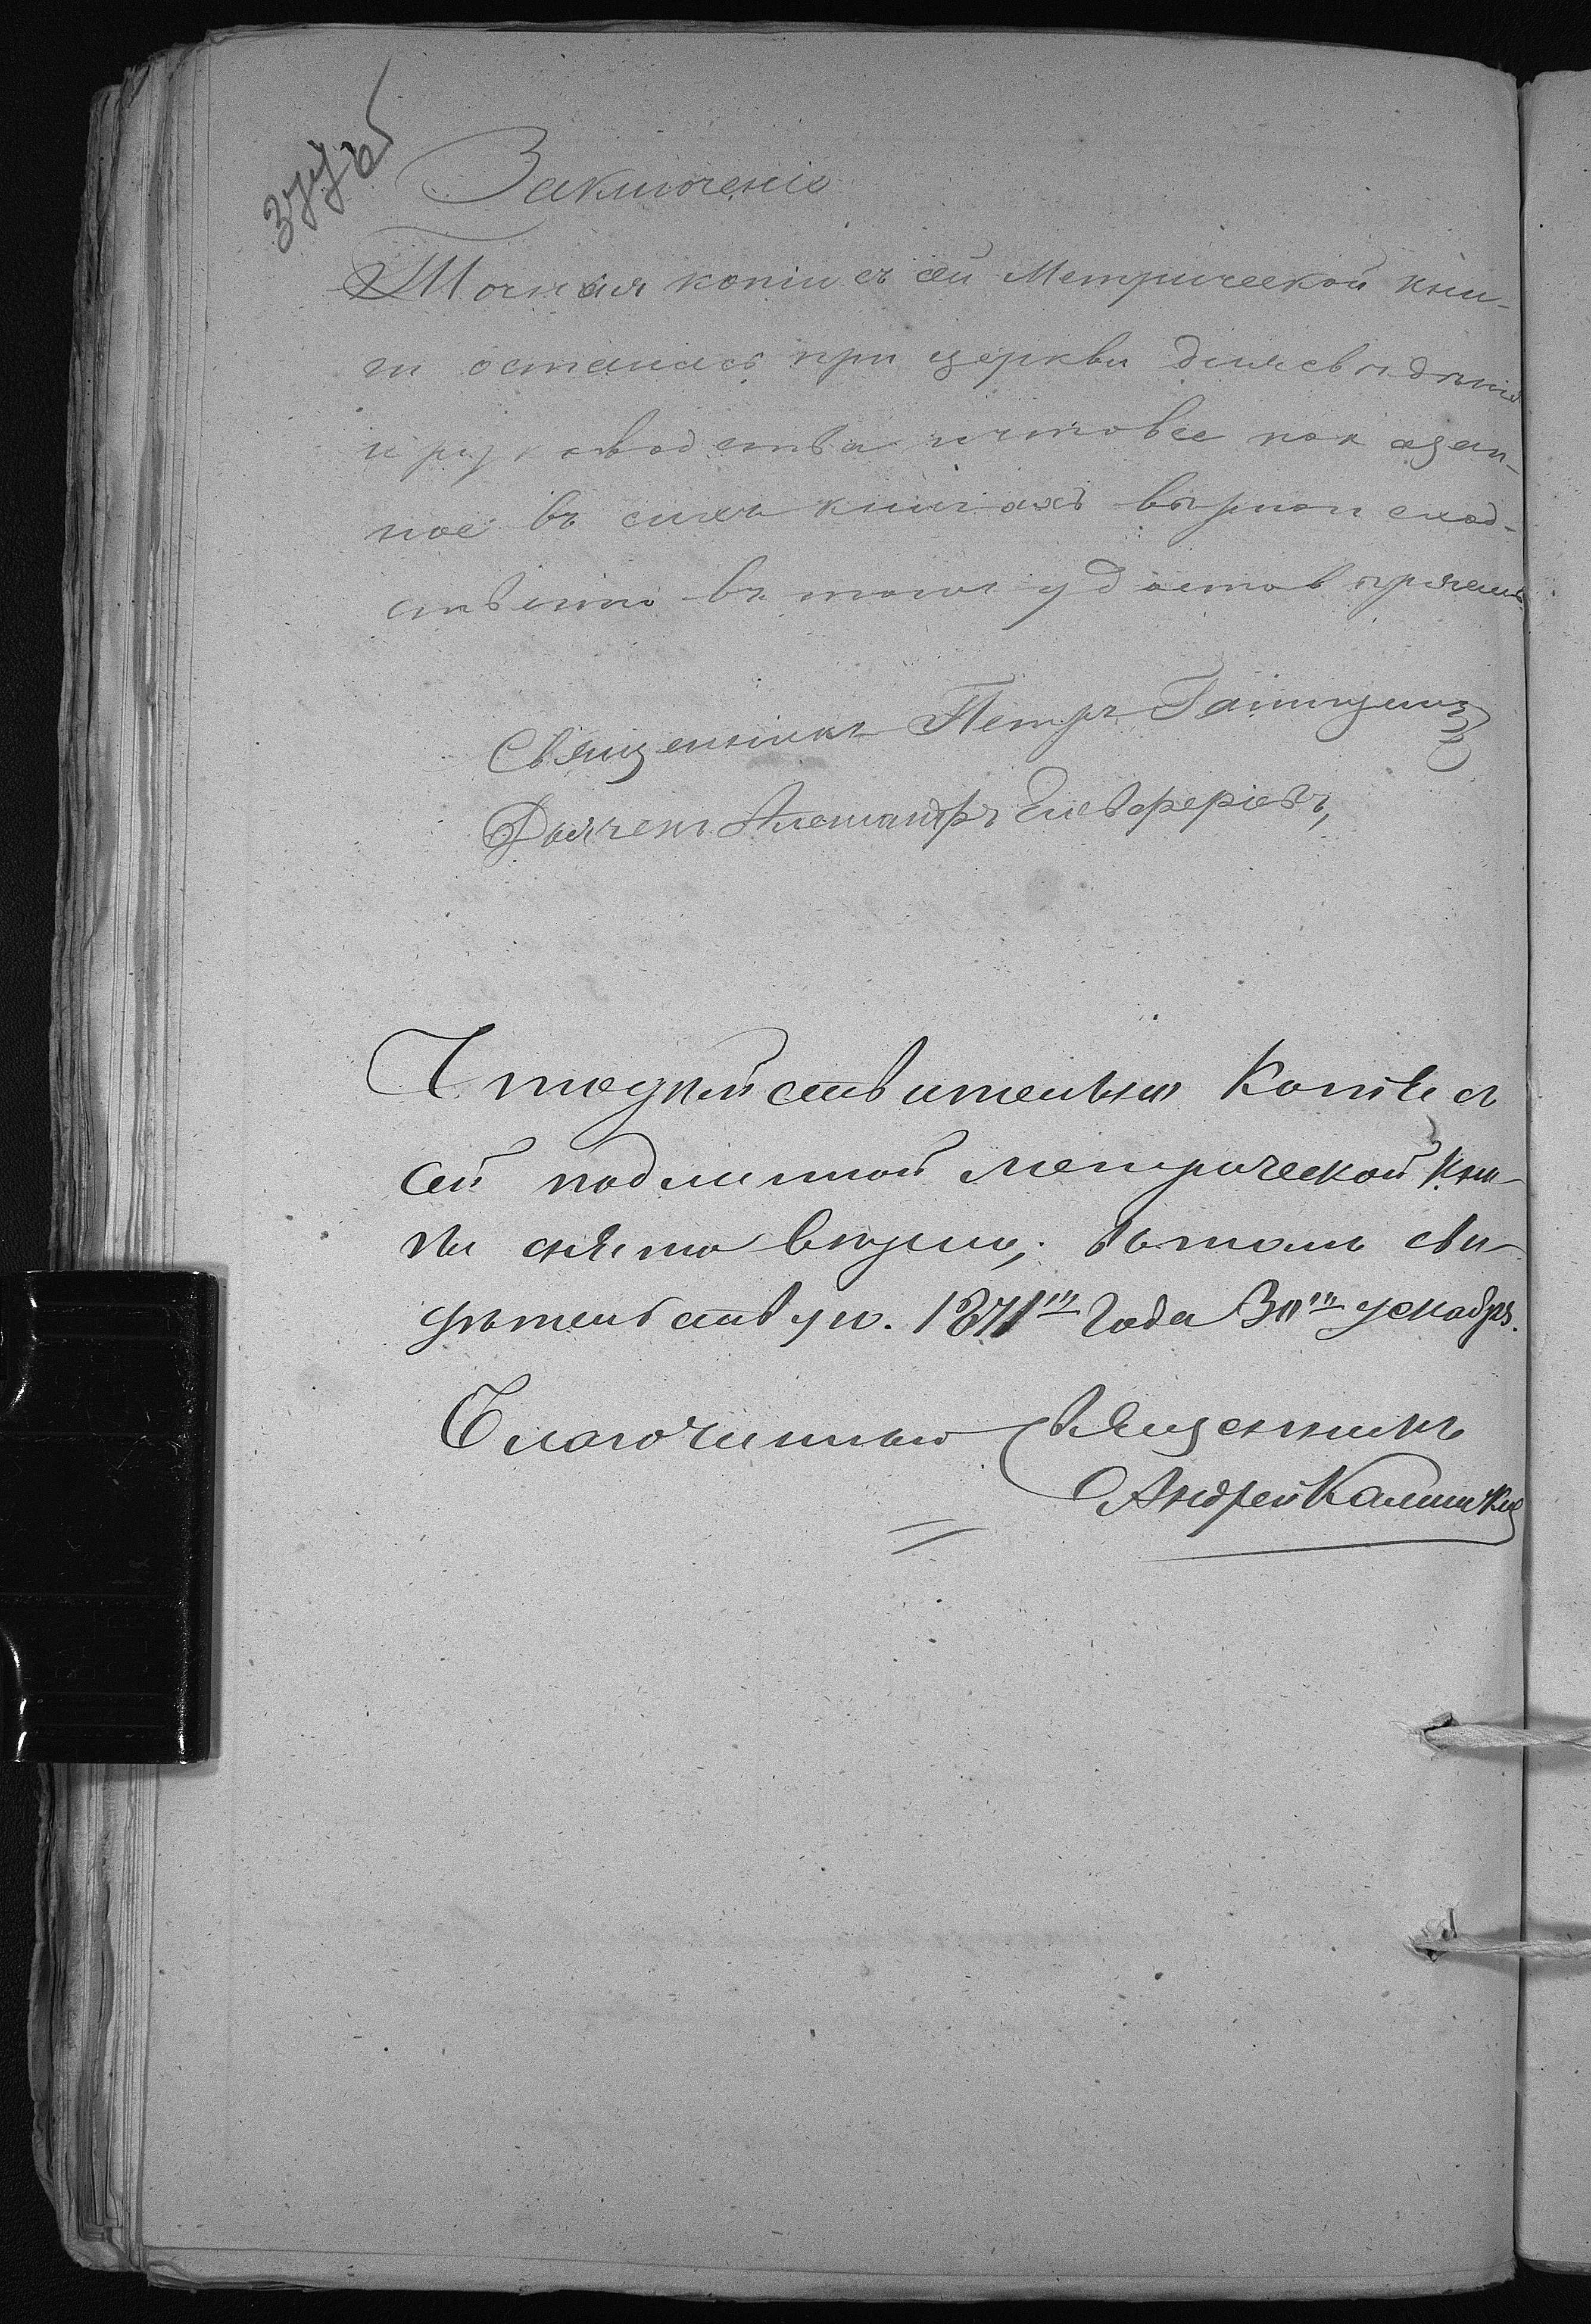 Заключеніе
Точная копія съ сей Метрической кни-
ги осталась при церкви для свѣдѣнія
и руководства и что все показан-
ное въ сихъ книгахъ вѣрно и сход-
ственно въ томъ удостовѣряемъ
Священникъ Петръ
Дьячекъ Александръ Елевферіевъ,
Что дѣйствительно Копія съ
сей подлинной метрической Кни-
ги снята вѣрно, въ томъ сви-
дѣтельствую. 1871го Года 30го декабря.
Благочинный Священникъ
Андрей